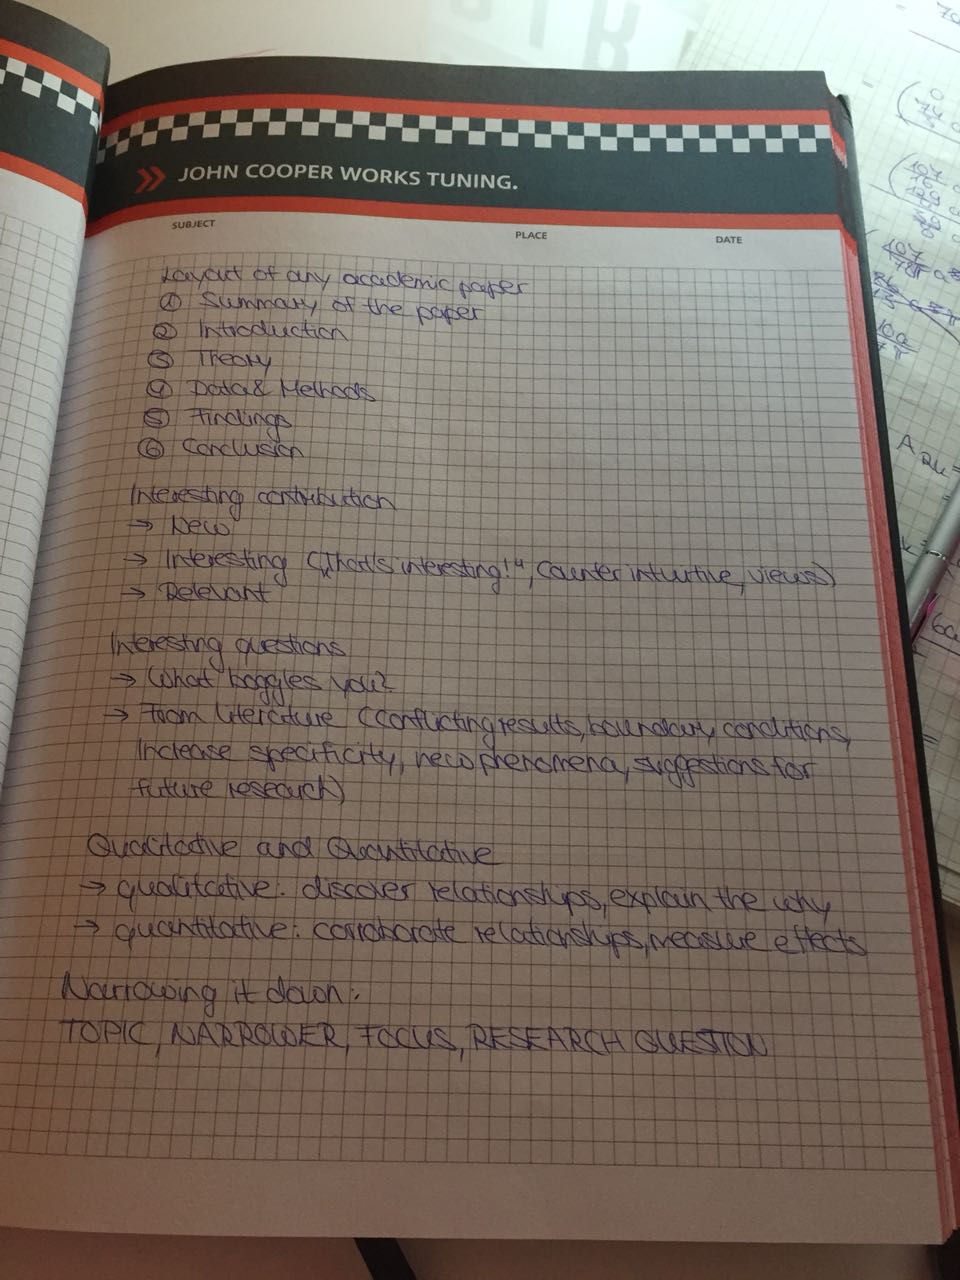 JOHN COOPER WORKS TUNING.
SUBJECT
PLACE
DATE
Layout of any academic paper
① Summary of the paper
② Introduction
③ Theory
④ Data & Methods
⑤ Findings
⑥ Conclusion
Interesting contribution
→ New
→ Interesting („That's interesting!“, counter intuitive, views)
→ Relevant
Interesting questions
→ What boggles you?
→ From literature (conflicting results, boundary conditions,
increase specificity, new phenomena, suggestions for
future research)
Qualitative and Quantitative
→ qualitative: discover relationships, explain the why
→ quantitative: corroborate relationships, measure effects
Narrowing it down:
TOPIC, NARROWER, FOCUS, RESEARCH QUESTION